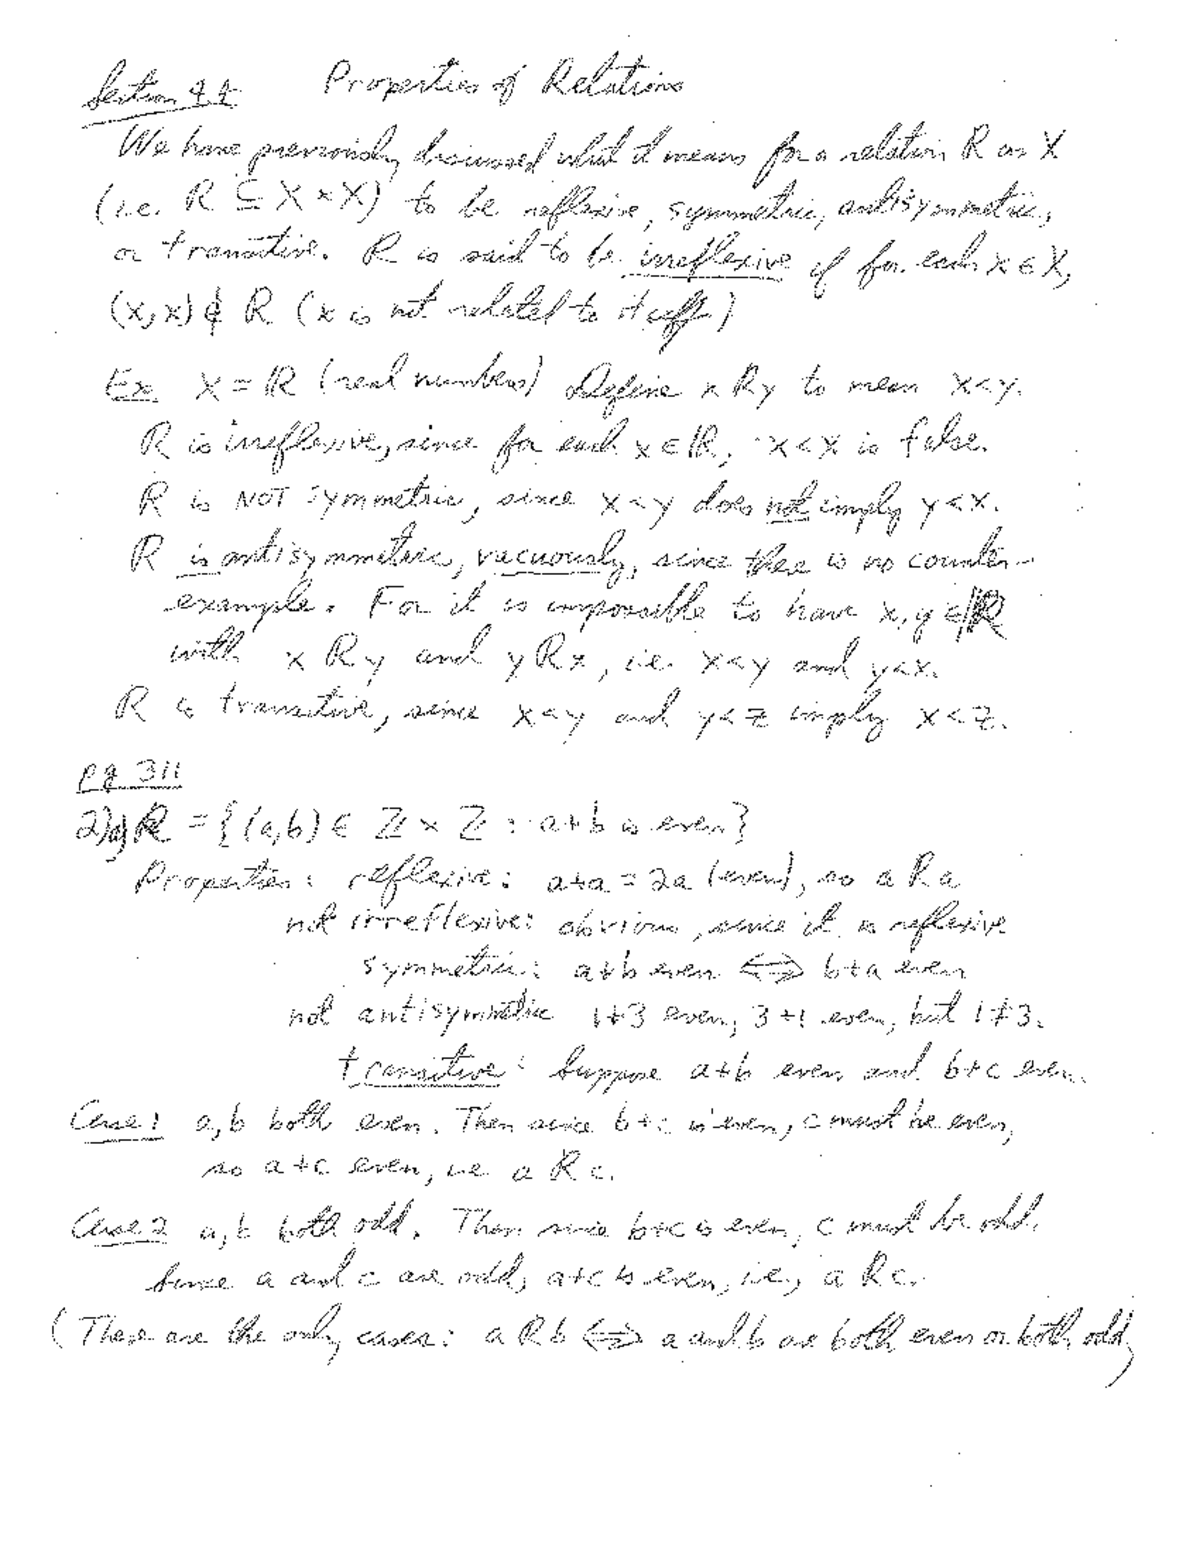 Section 4.4 Properties of Relations
We have previously discussed what it means for a relation R on X
(i.e. R ⊆ X × X) to be reflexive, symmetric, antisymmetric,
or transitive. R is said to be irreflexive if for each x ∈ X,
(x,x) ∉ R (x is not related to itself)
Ex. X = ℝ (real numbers) Define x R y to mean x<y.
R is irreflexive, since for each x ∈ ℝ, x<x is false.
R is NOT symmetric, since x<y does not imply y<x.
R is antisymmetric, vacuously, since there is no counter-
example. For it is impossible to have x, y ∈ ℝ
with x R y and y R x, i.e. x<y and y<x.
R is transitive, since x<y and y<z imply x<z.
pg 311
2) R = {(a,b) ∈ ℤ × ℤ : a+b is even}
Properties: reflexive: a+a = 2a (even), so a R a
not irreflexive: obvious, since it is reflexive
symmetric: a+b even ⟺ b+a even
not antisymmetric 1+3 even, 3+1 even, but 1≠3.
transitive: Suppose a+b even and b+c even.
Case 1 a, b both even. Then since b+c is even, c must be even,
so a+c even, i.e. a R c.
Case 2 a, b both odd. Then since b+c is even, c must be odd.
Since a and c are odd, a+c is even, i.e., a R c.
(These are the only cases: a R b ⟺ a and b are both even or both odd)